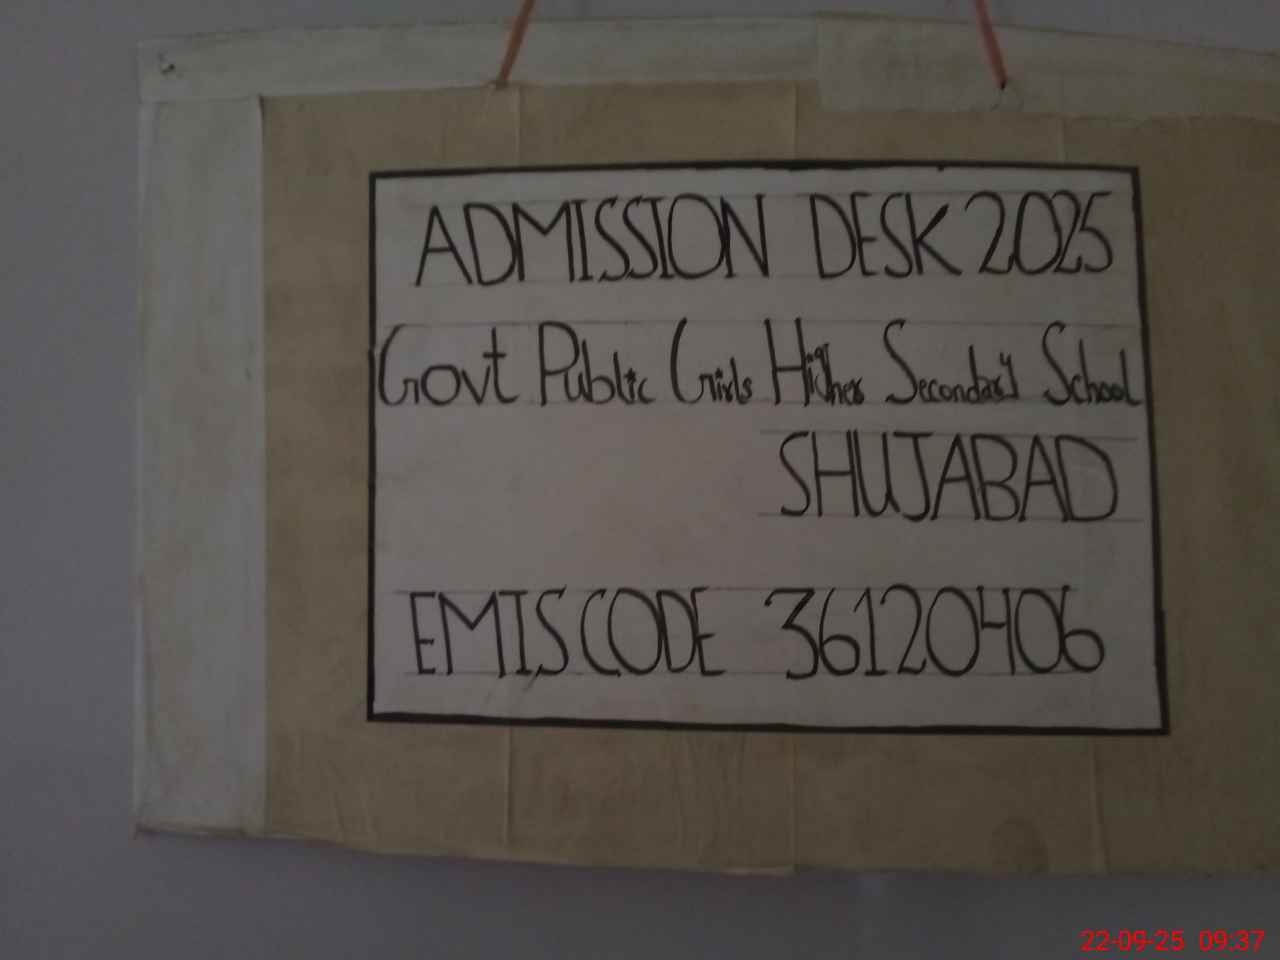 ADMISSION DESK 2025
Govt Public Girls Higher Secondary School
SHUJABAD
EMIS CODE 36120406
22-09-25 09:37